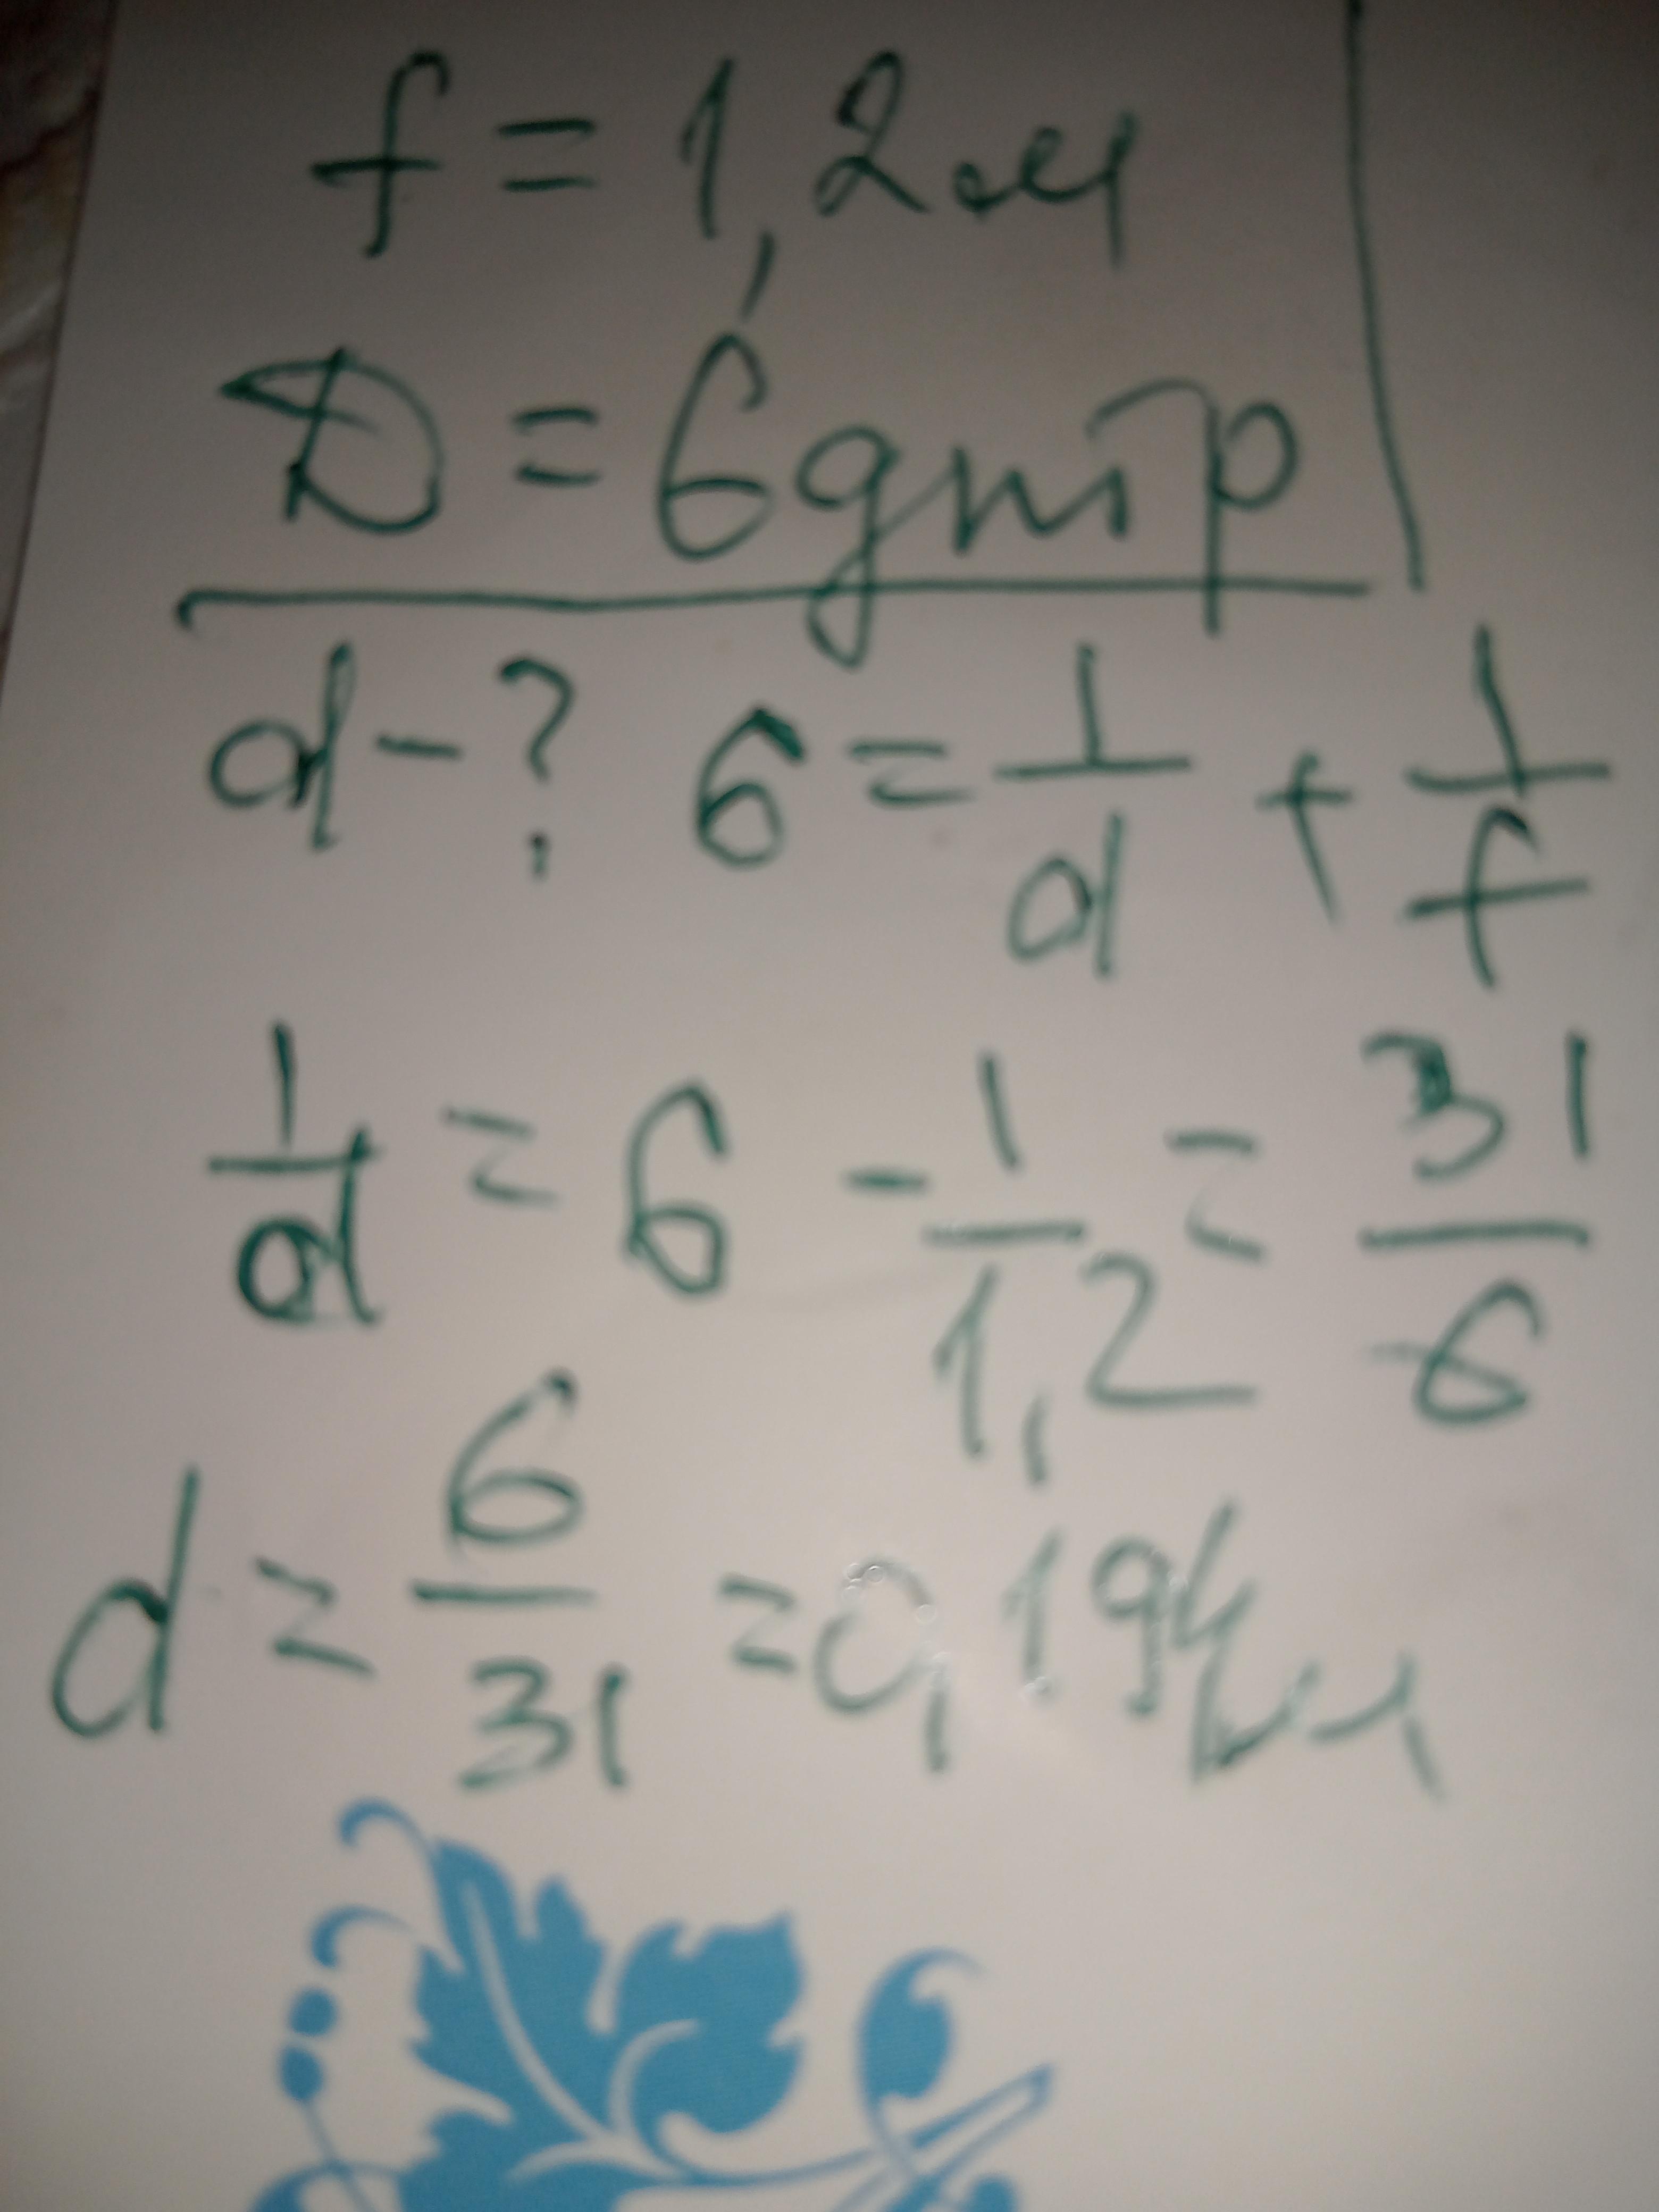 f = 1,2м
D = 6 дптр
d - ? 6 = 1/d + 1/f
1/d = 6 - 1/1,2 = 31/6
d = 6/31 = 0,194м